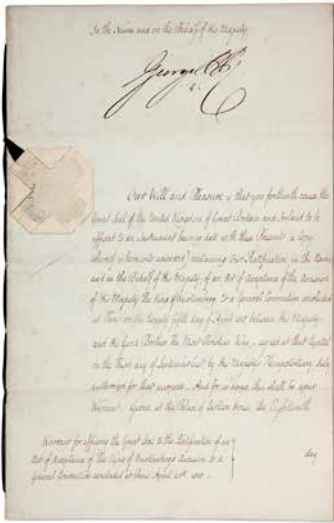 In the Name and on the Behalf of His Majesty
George P R
Our Will and Pleasure is that you forthwith cause the
Great Seal of the United Kingdom of Great Britain and Ireland to be
affixed to an Instrument bearing date with these Presents (a Copy
whereof is hereunto annexed) containing Our Ratification, in the Name
and on the Behalf of His Majesty of an Act of Acceptance of the Accession
of His Majesty the King of Wurtemberg, to a General Convention concluded
at on the twenty fifth day of April last between His Majesty
and His Good Brother The Most Christian King, signed at that Capital
on the Third day of Instant by His Majesty's Plenipotentiary duly
authorized for that purpose. And for so doing this shall be your
Warrant. Given at the Palace of Carlton House the Eighteenth
day
Warrant for affixing the Great Seal to the Ratification of an
Act of Acceptance of the King of Wurtemberg's Accession to a
General Convention concluded at Paris April 25th